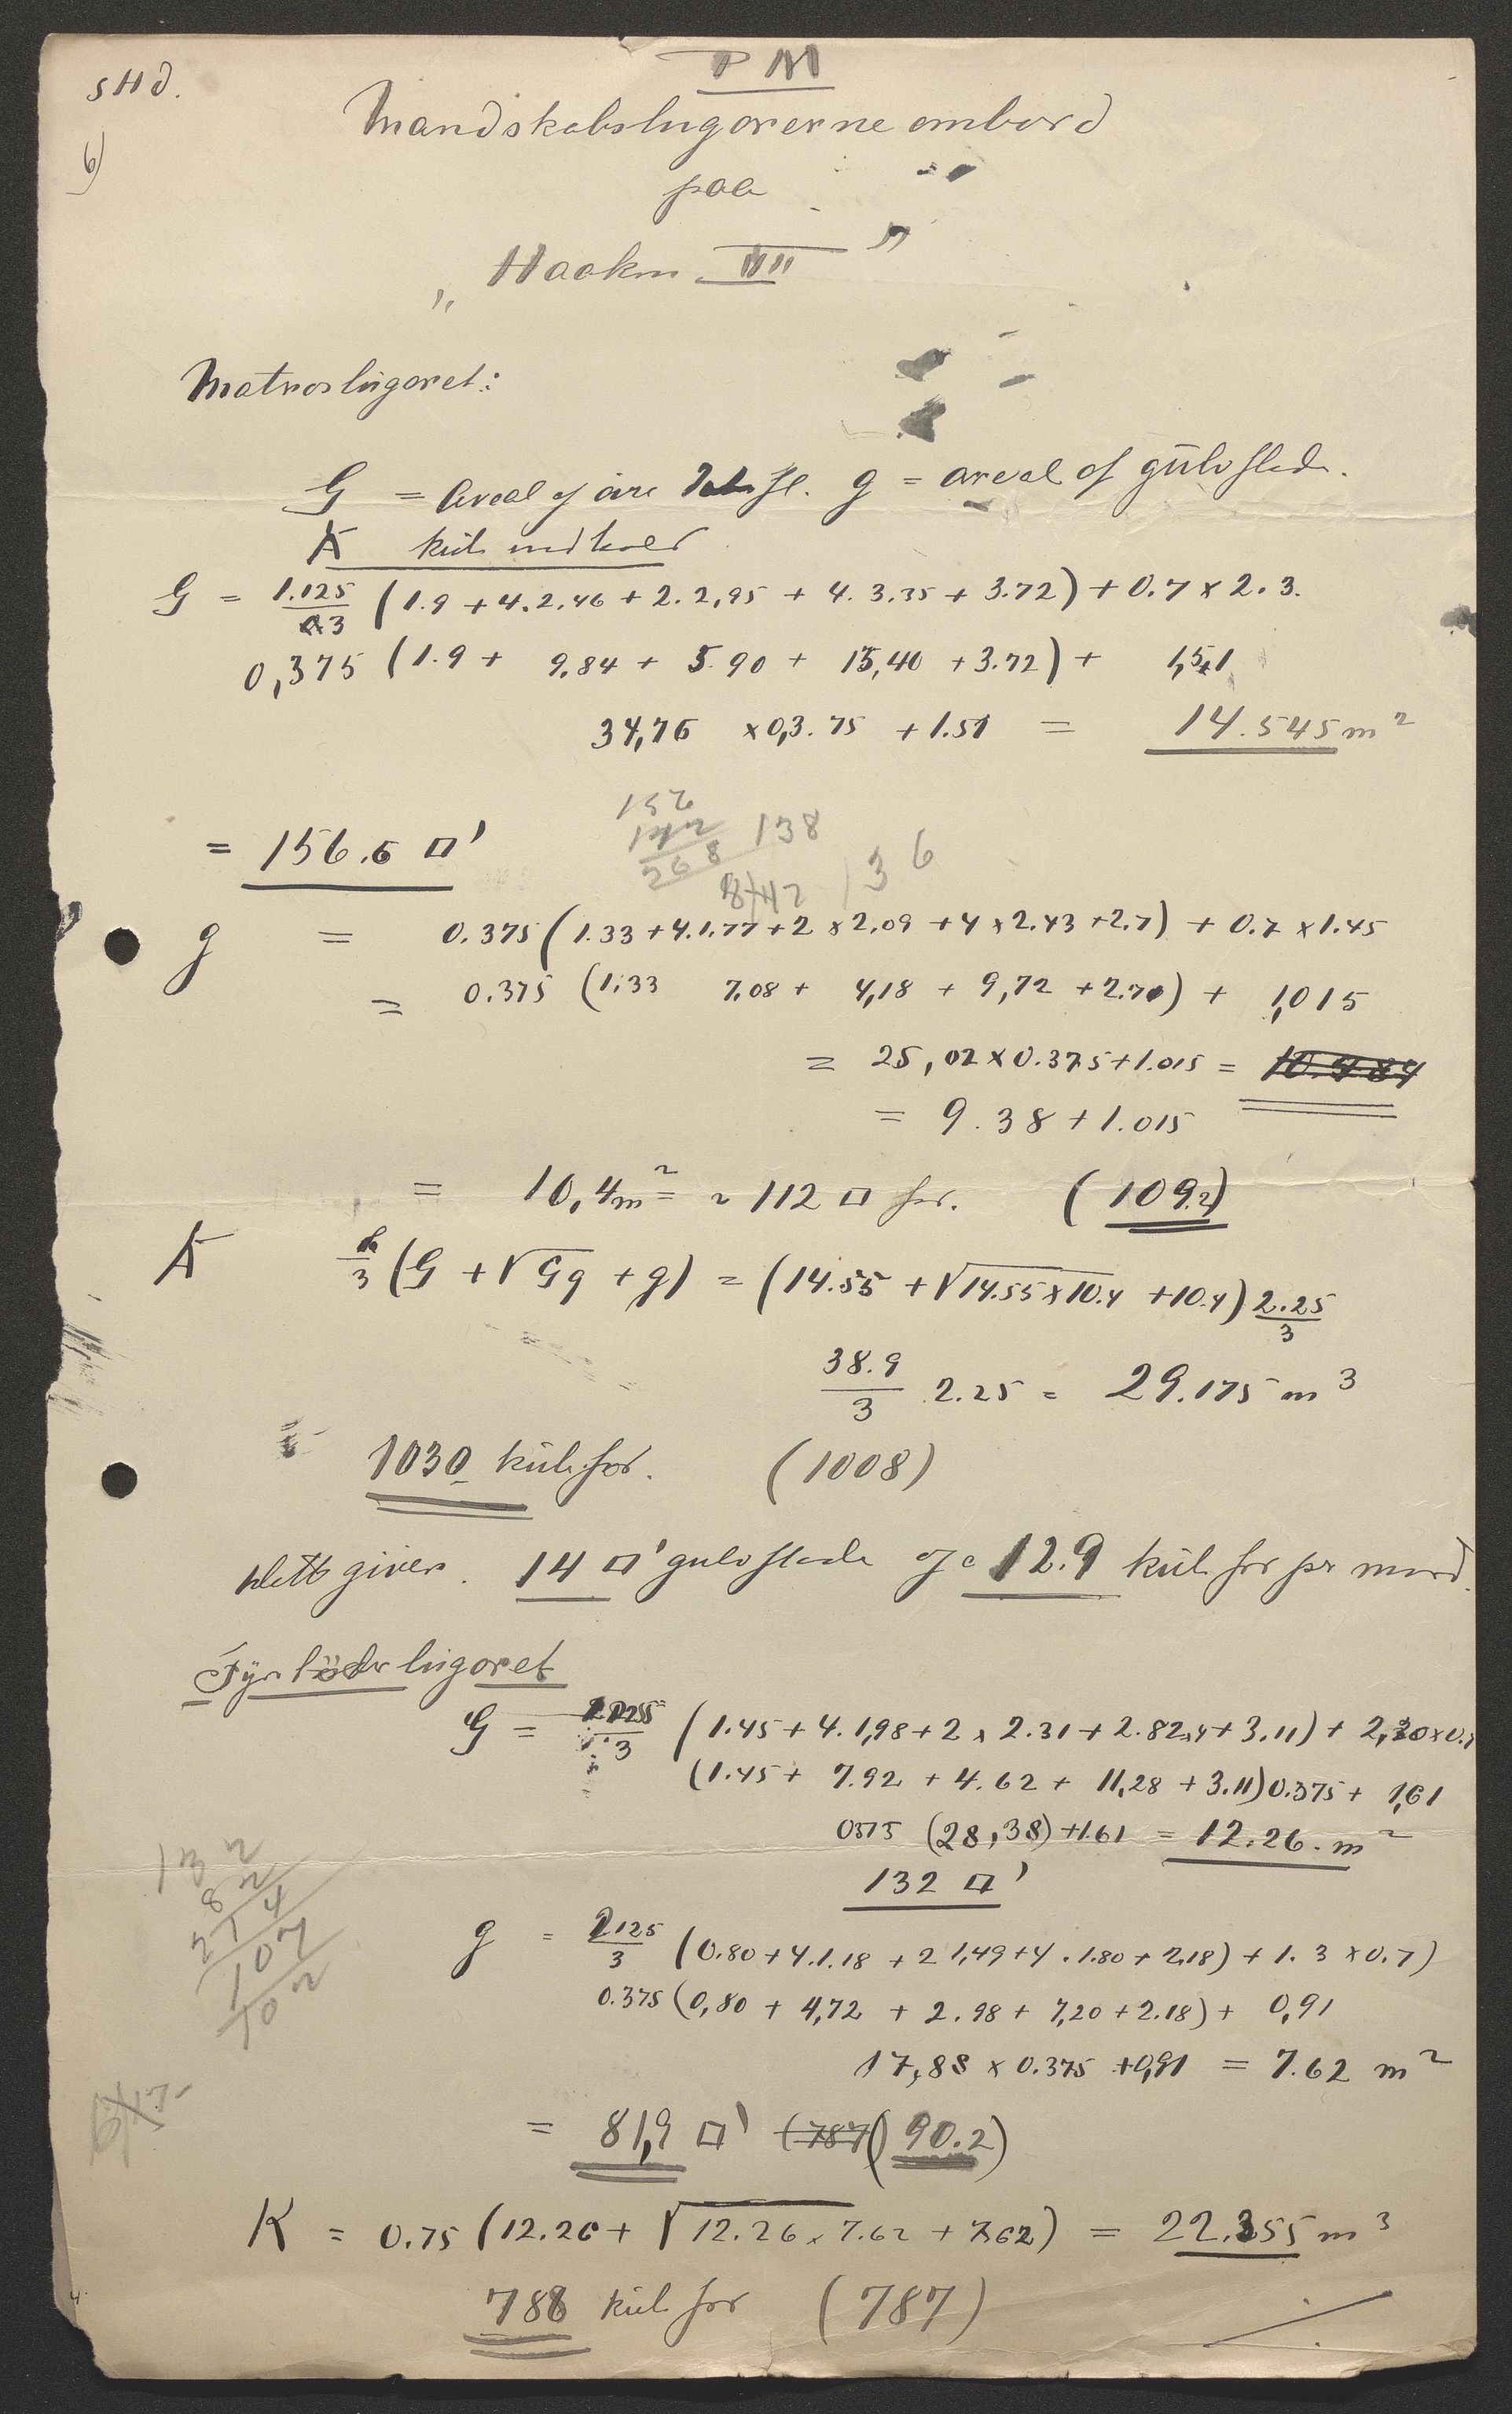 PM
SHd.
Mandskabslugarerne ombord
6)
paa
„Haakon VII"
Matroslugaret:
G = Areal af øvre fl. g = areal af gulvflade.
K kub indhold
G = 1.125/3 (1.9 + 4.2.46 + 2.2,95 + 4.3.35 + 3.72) + 0.7 x 2.3.
0,375 (1.9 + 9.84 + 5.90 + 13,40 + 3.72) + 1,51
34,76 x 0,3.75 + 1.51 = 14.545 m²
156
142
268 138
= 156.6 □'
136
8/42
g = 0.375 (1.33 + 4.1.77 + 2 x 2.09 + 4 x 2.43 + 2.7) + 0.7 x 1.45
= 0.375 (1.33 7.08 + 4,18 + 9,72 + 2.70) + 1,015
= 25,02 x 0.375 + 1.015 = 10.484
= 9.38 + 1.015
= 10,4 m² = ~ 112 □ for. (109.2)
K h/3 (G + √Gg + g) = (14.55 + √14.55 x 10.4 + 10.4) 2.25/3
38.9/3 2.25 = 29.175 m³
1030 kub. for. (1008)
dette giver. 14 □' gulvflade og c 12.9 kub for pr mand.
Fyrbøderlugaret
G = 1.125/3 (1.45 + 4.1,98 + 2 x 2.31 + 2.82 x 4 + 3.11) + 2,30 x 0.7
(1.45 + 7.92 + 4.62 + 11,28 + 3.11) 0.375 + 1,61
0375 (28,38) + 1.61 = 12.26. m²
132 □'
132
82
214
107
102
g = 1.125/3 (0.80 + 4.1.18 + 2 1,49 + 4.1.80 + 2.18) + 1.3 x 0.7)
0.375 (0,80 + 4,72 + 2.98 + 7,20 + 2.18) + 0,91
17,88 x 0.375 + 0,91 = 7.62 m²
= 81,9 □' (787) (90.2)
K = 0.75 (12.26 + √12.26 x 7.62 + 7.62) = 22.355 m³
788 kub for (787)